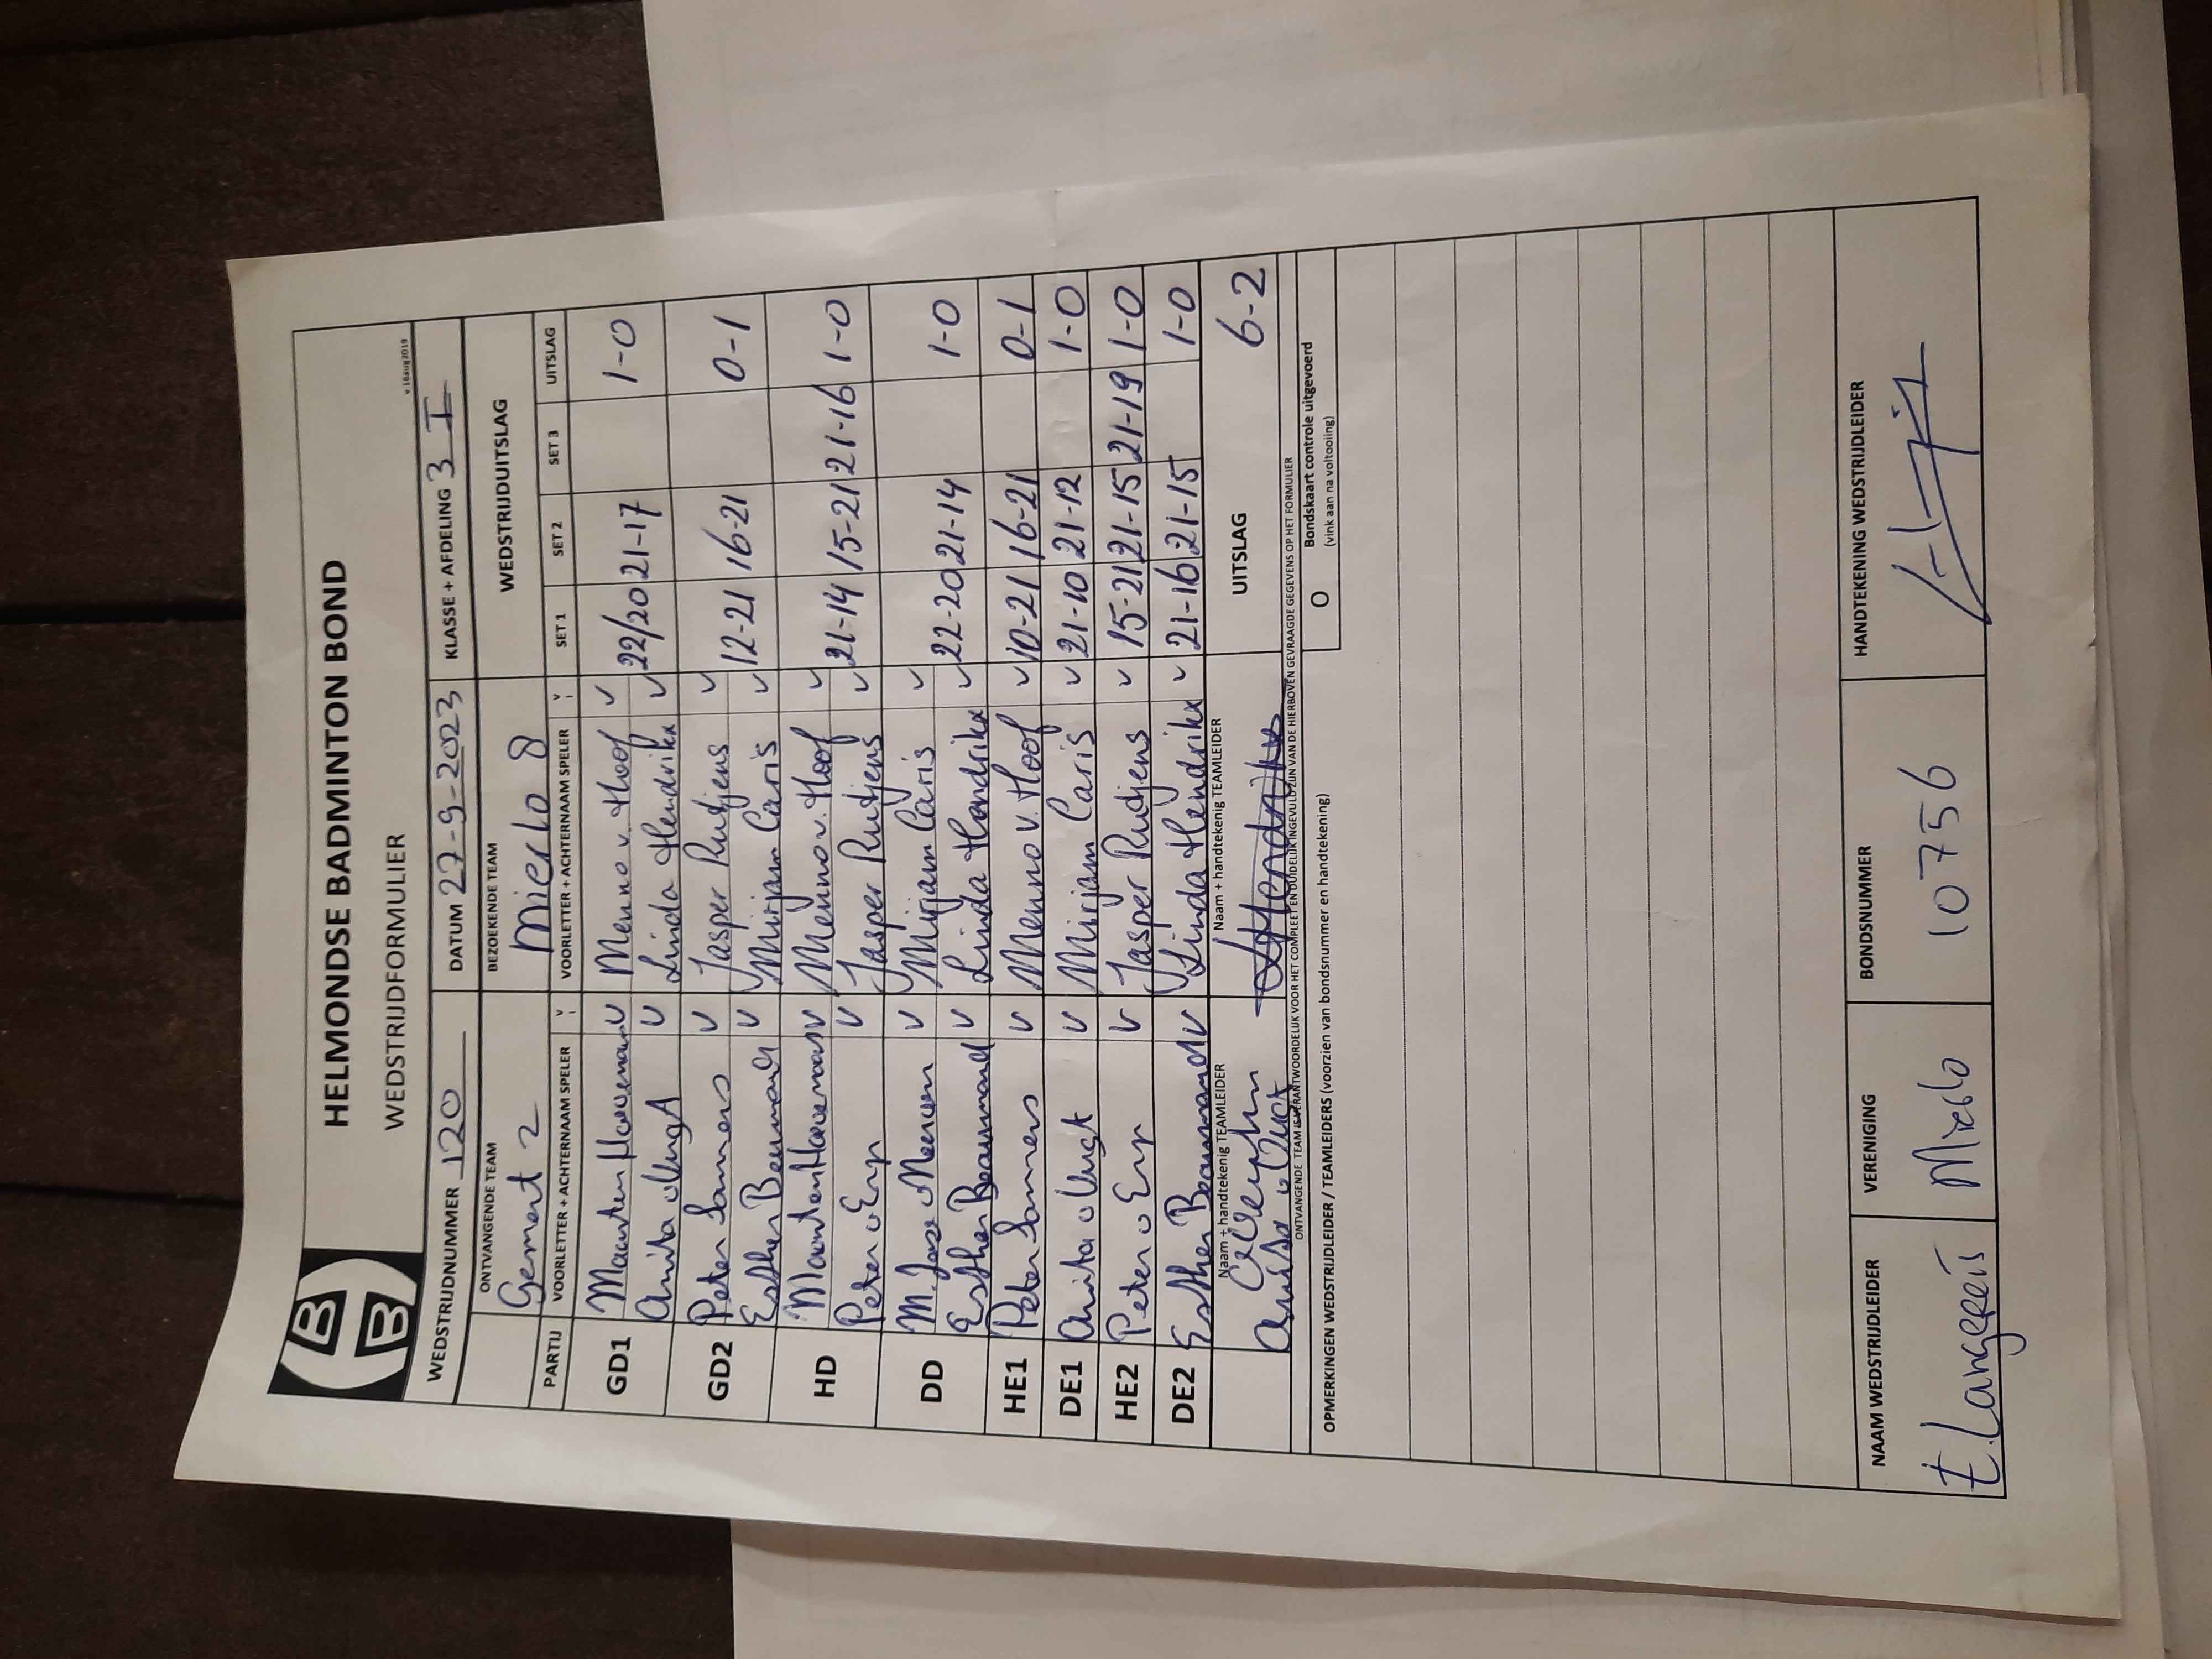 HELMONDSE BADMINTON BOND
BB
WEDSTRIJDFORMULIER
v.18aug2019
WEDSTRIJDNUMMER 120 DATUM 27-9-2023 KLASSE + AFDELING 3 I
ONTVANGENDE TEAM BEZOEKENDE TEAM WEDSTRIJDUITSLAG
Gemert 2 Mierlo 8
PARTIJ VOORLETTER + ACHTERNAAM SPELER V VOORLETTER + ACHTERNAAM SPELER V SET 1 SET 2 SET 3 UITSLAG
GD1 Maarten v Menno v. Hoof v 22/20 21-17 1-0
Anita v Vugt v Linda Hendrikx v
GD2 Peter Somers v Jasper Rutjens v 12-21 16-21 0-1
Esther v Mirjam Caris v
HD Maarten v Menno v. Hoof v 21-14 15-21 21-16 1-0
Peter v Erp v Jasper Rutjens v
DD M. Jose v Meeuwen v Mirjam Caris v 22-20 21-14 1-0
Esther Beaumond v Linda Hendrikx v
HE1 Peter Somers v Menno v. Hoof v 10-21 16-21 0-1
DE1 Anita v Vugt v Mirjam Caris v 21-10 21-12 1-0
HE2 Peter v Erp v Jasper Rutjens v 15-21 21-15 21-19 1-0
DE2 Esther Beaumond v Linda Hendrikx v 21-16 21-15 1-0
Naam + handtekenig TEAMLEIDER Naam + handtekenig TEAMLEIDER UITSLAG 6-2
Anita v Vugt LHendrikx
ONTVANGENDE TEAM IS VERANTWOORDELIJK VOOR HET COMPLEET EN DUIDELIJK INGEVULD ZIJN VAN DE HIERBOVEN GEVRAAGDE GEGEVENS OP HET FORMULIER
O Bondskaart controle uitgevoerd
(vink aan na voltooiing)
OPMERKINGEN WEDSTRIJDLEIDER / TEAMLEIDERS (voorzien van bondsnummer en handtekening)
NAAM WEDSTRIJDLEIDER VERENIGING BONDSNUMMER HANDTEKENING WEDSTRIJDLEIDER
E. Langereis Mierlo 10756